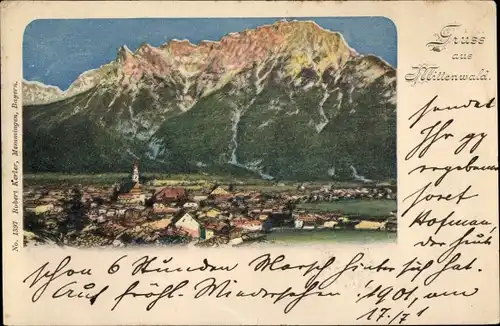 Gruss
aus
Mittenwald.
No. 1397 Robert Kerler, Memmingen, Bayern.
sendet
Ihr gz
ergebener
Josef
Hofmann
der heute
schon 6 Stunden Marsch hinter sich hat.
Auf fröhl. Wiedersehen!
1901, am
17./71